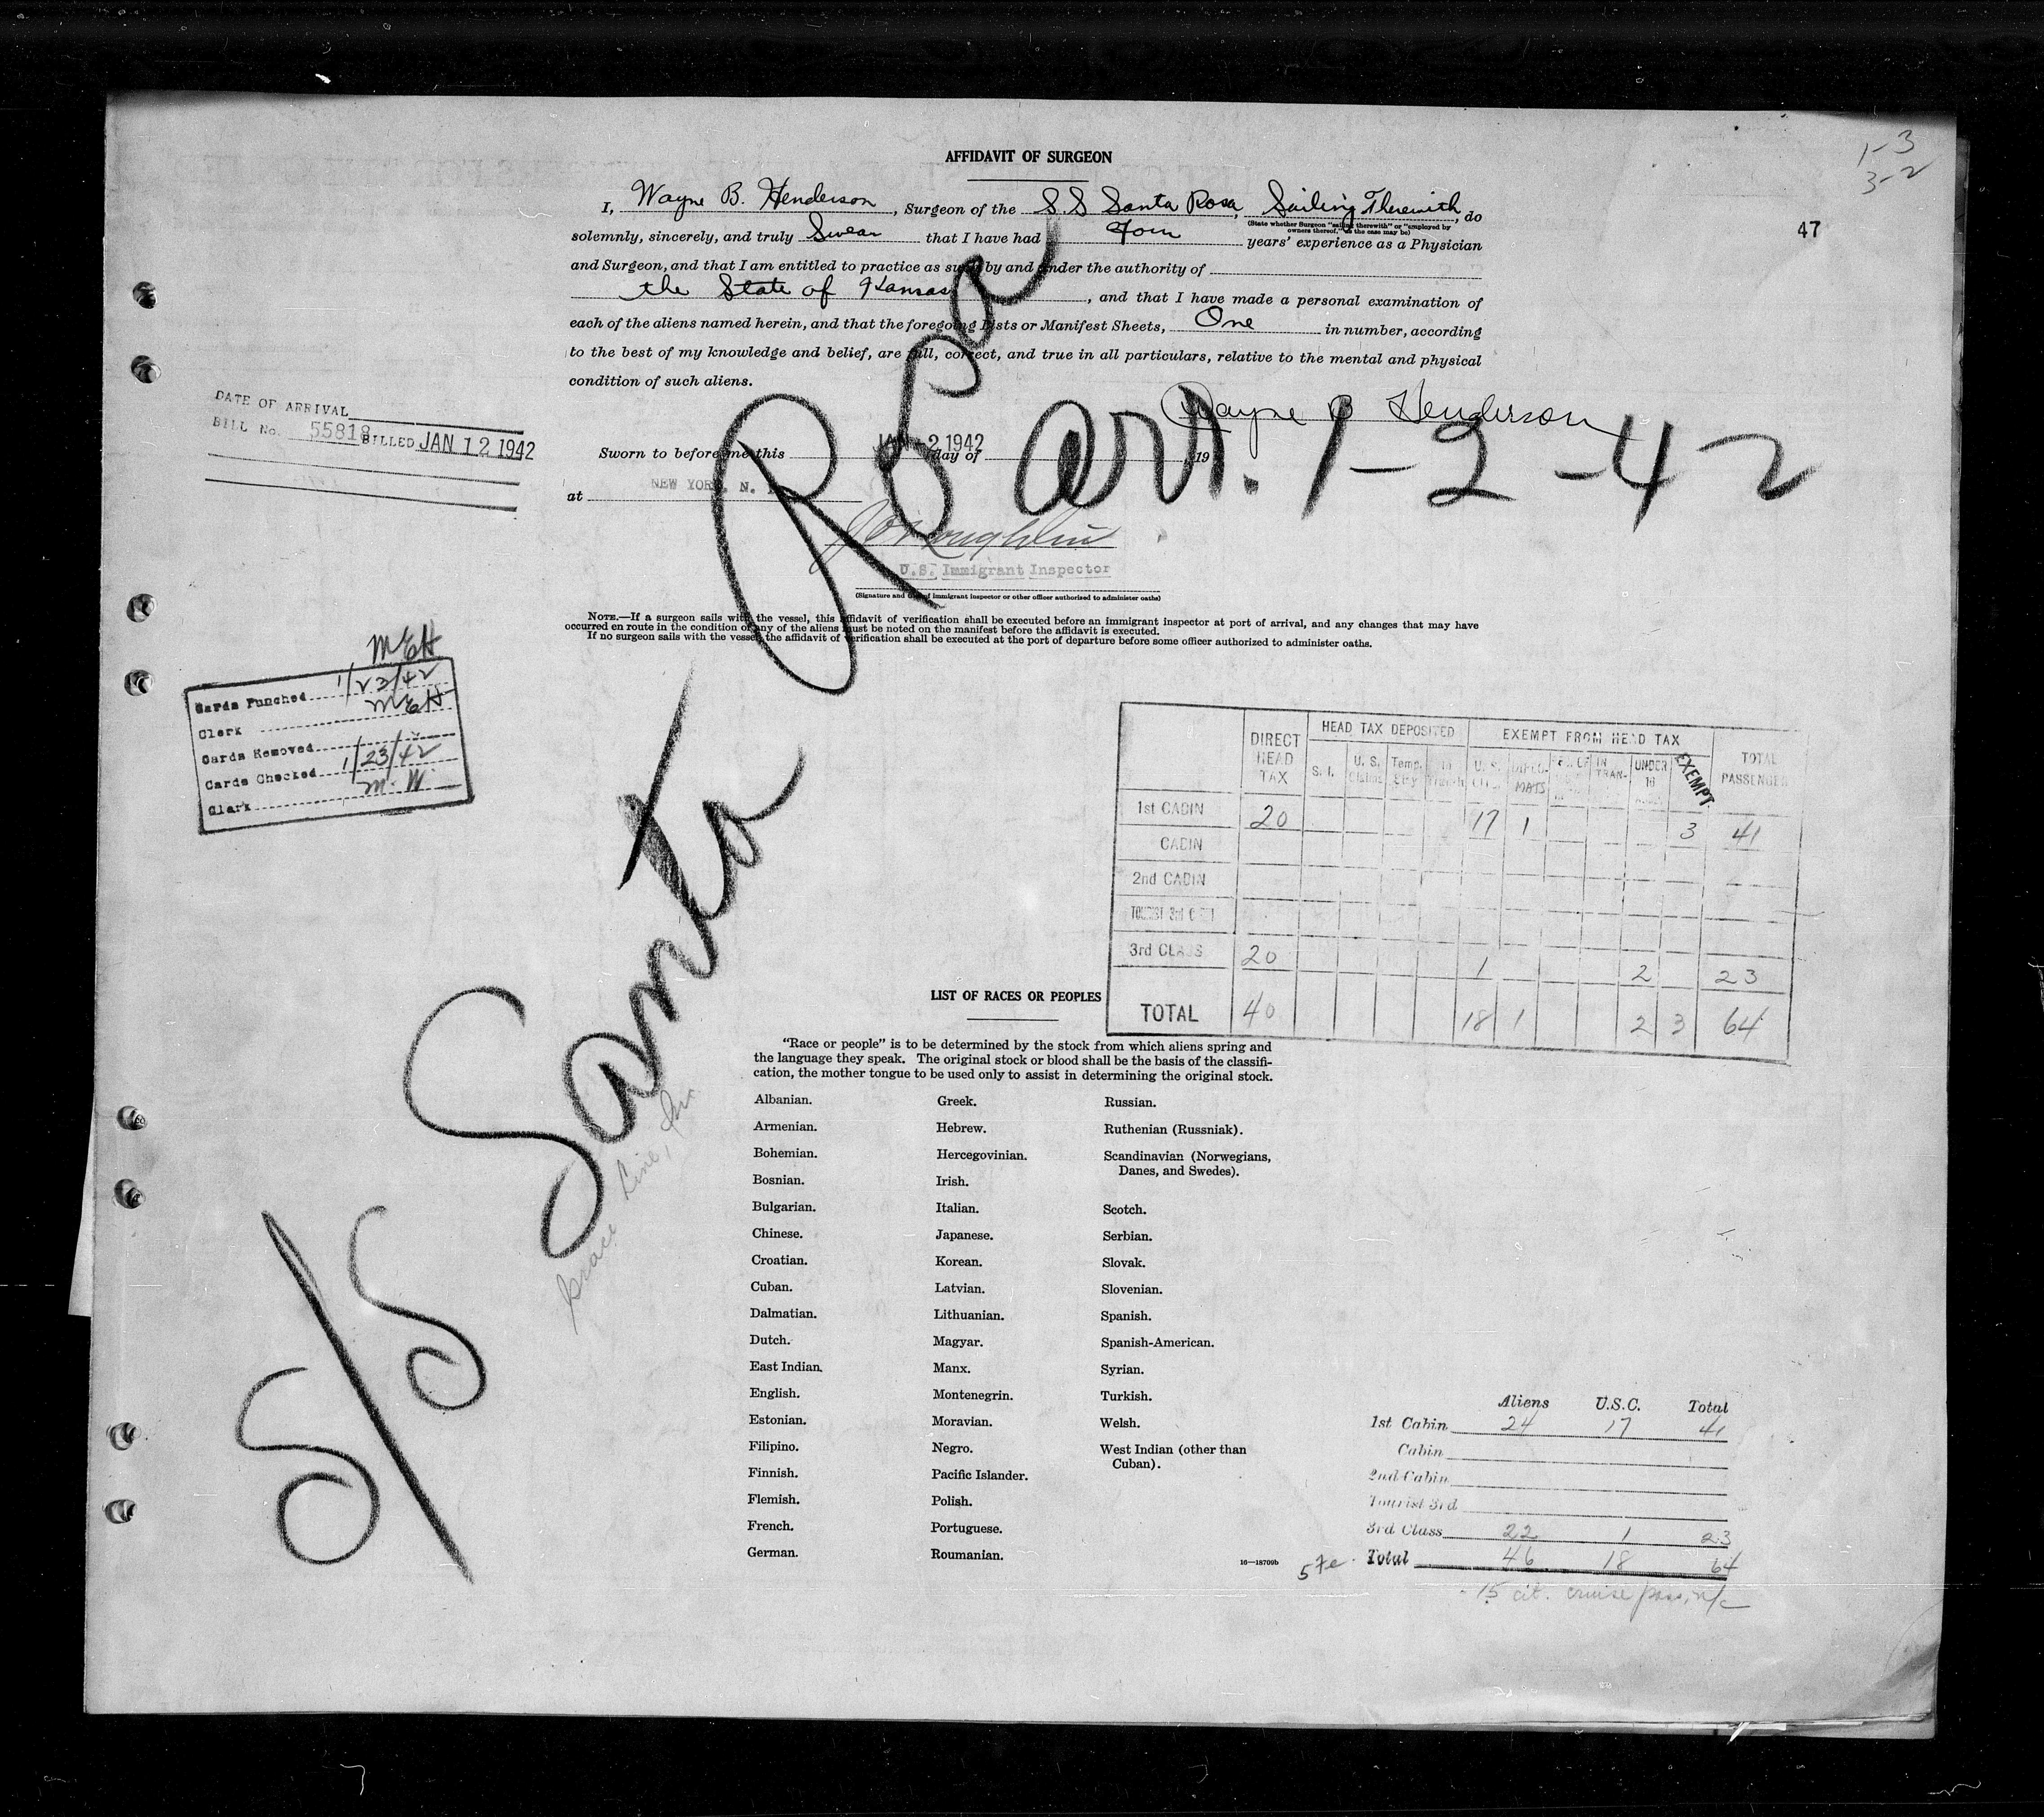 1-3
3-2
47
AFFIDAVIT OF SURGEON
I, Wayne B. Henderson, Surgeon of the S.S Santa Rosa, Sailing Therewith, do
(State whether Surgeon "sailing therewith" or "employed by
owners thereof," as the case may be)
solemnly, sincerely, and truly Swear that I have had Four years' experience as a Physician
and Surgeon, and that I am entitled to practice as such by and under the authority of
the State of Kansas, and that I have made a personal examination of
each of the aliens named herein, and that the foregoing Lists or Manifest Sheets, One in number, according
to the best of my knowledge and belief, are full, correct, and true in all particulars, relative to the mental and physical
condition of such aliens.
Wayne B Henderson
DATE OF ARRIVAL
BILL No. 55818 BILLED JAN 12 1942
Sworn to before me this JAN -2 1942 day of , 19
at NEW YORK, N.
U.S. Immigrant Inspector
(Signature and title of immigrant inspector or other officer authorized to administer oaths)
NOTE.—If a surgeon sails with the vessel, this affidavit of verification shall be executed before an immigrant inspector at port of arrival, and any changes that may have
occurred en route in the condition of any of the aliens must be noted on the manifest before the affidavit is executed.
If no surgeon sails with the vessel, the affidavit of verification shall be executed at the port of departure before some officer authorized to administer oaths.
S/S Santa Rosa arr. 1-2-42
Grace Line, Inc
MEH
Cards Punched 1/23/42
Clerk MEH
Cards Removed
Cards Checked 1/23/42
Clerk M. W.
DIRECT HEAD TAX
HEAD TAX DEPOSITED
EXEMPT FROM HEAD TAX
TOTAL PASSENGER
S. I. U. S. Claims Temp. U. S. DIPLOMATS IN TRAN- UNDER 16 EXEMPT
1st CABIN 20 17 1 3 41
CABIN
2nd CABIN
TOURIST 3rd
3rd CLASS 20 1 2 23
TOTAL 40 18 1 2 3 64
LIST OF RACES OR PEOPLES
"Race or people" is to be determined by the stock from which aliens spring and
the language they speak. The original stock or blood shall be the basis of the classifi-
cation, the mother tongue to be used only to assist in determining the original stock.
Albanian.
Armenian.
Bohemian.
Bosnian.
Bulgarian.
Chinese.
Croatian.
Cuban.
Dalmatian.
Dutch.
East Indian.
English.
Estonian.
Filipino.
Finnish.
Flemish.
French.
German.
Greek.
Hebrew.
Hercegovinian.
Irish.
Italian.
Japanese.
Korean.
Latvian.
Lithuanian.
Magyar.
Manx.
Montenegrin.
Moravian.
Negro.
Pacific Islander.
Polish.
Portuguese.
Roumanian.
Russian.
Ruthenian (Russniak).
Scandinavian (Norwegians,
Danes, and Swedes).
Scotch.
Serbian.
Slovak.
Slovenian.
Spanish.
Spanish-American.
Syrian.
Turkish.
Welsh.
West Indian (other than
Cuban).
16—18709b
Aliens U.S.C. Total
1st Cabin 24 17 41
Cabin
2nd Cabin
Tourist 3rd
3rd Class 22 1 23
Total 46 18 64
15 cit. cruise pass, n/c